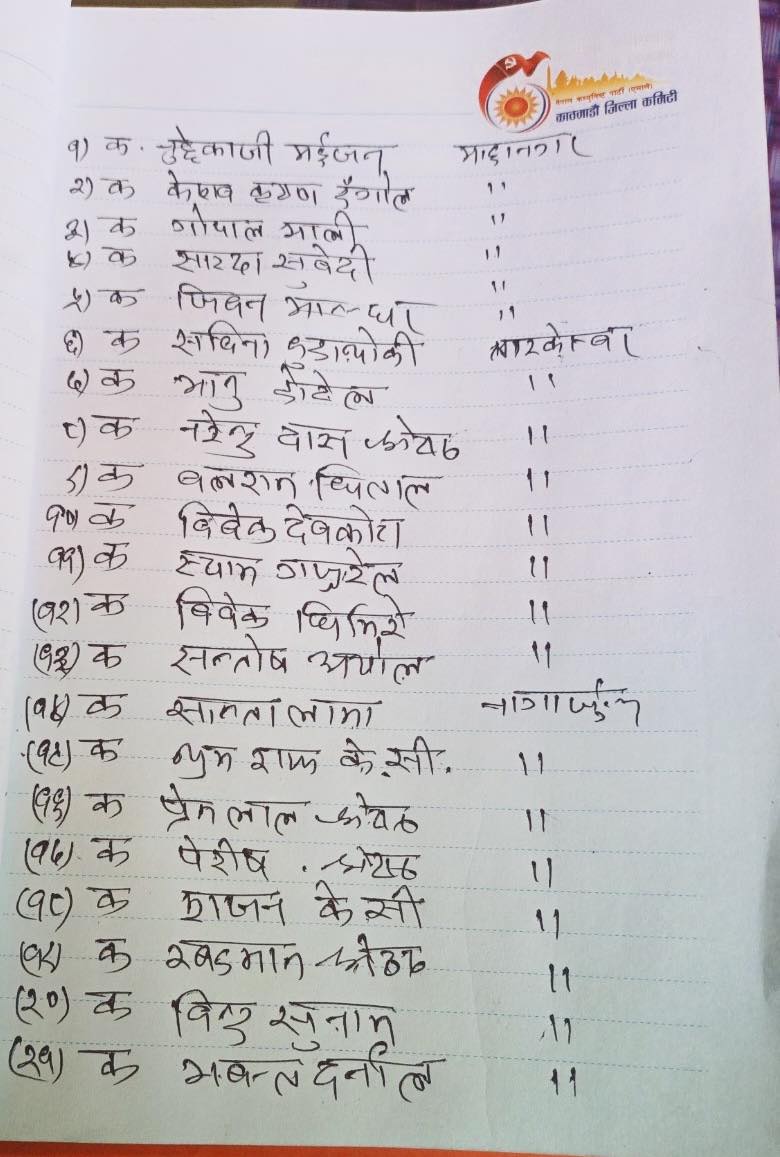 नेपाल कम्युनिष्ट पार्टी (एमाले)
काठमाडौं जिल्ला कमिटी
१) क. चुद्देकाजी मर्हजन माहानगर
२) क केशब कृष्ण डँगोल "
३) क गोपाल माली "
४) क सारदा सुबेदी "
५) क जिबन मानन्धर "
६) क सविना कुडाथोकी तारकेश्वर
७) क भानु पौडेल "
८) क नरेन्द्र दास श्रेष्ठ "
९) क बलराम धिताल "
१०) क बिबेक देबकोटा "
११) क श्याम गजुरेल "
(१२) क बिवेक घिमिरे "
(१३) क सन्तोष अर्याल "
(१४) क सान्ता लामा नागार्जुन
(१५) क राम के.सी. "
(१६) क प्रेम लाल श्रेष्ठ "
(१७) क श्रेष्ठ "
(१८) क राजन के सी "
(१९) क खडमान श्रेष्ठ "
(२०) क बिन्दु सुनाम "
(२१) क भबन्त दर्नाल "